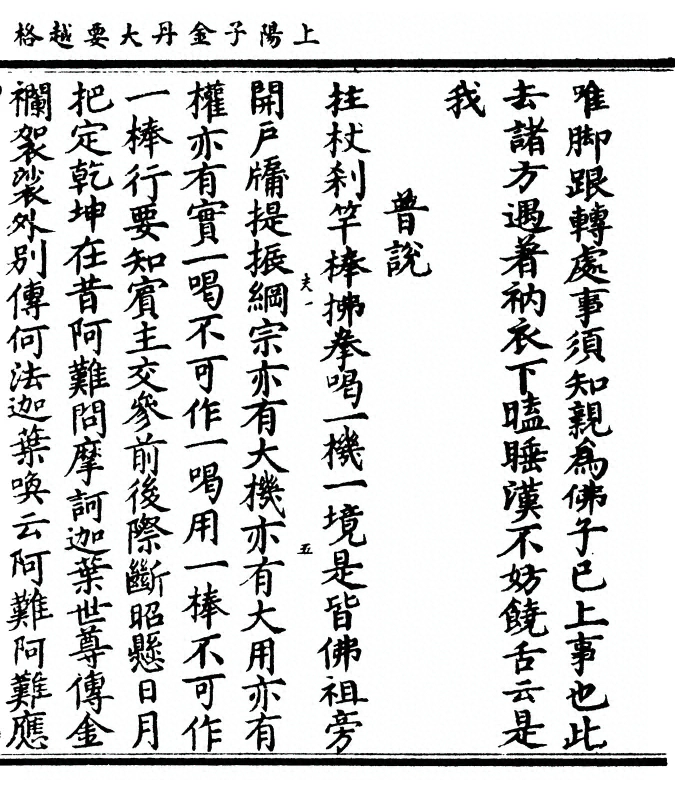 上陽子金丹大要越格
唯脚跟轉處事須知親為佛子已上事也此
去諸方遇着衲衣下瞌睡漢不妨饒舌云是
我
普說
拄杖刹竿棒拂拳喝一機一境是皆佛祖旁
夫一
五
開戶牖提振綱宗亦有大機亦有大用亦有
權亦有實一喝不可作一喝用一棒不可作
一棒行要知賓主交參前後際斷昭懸日月
把定乾坤在昔阿難問摩訶迦葉世尊傳金
襴袈裟外別傳何法迦葉喚云阿難阿難應